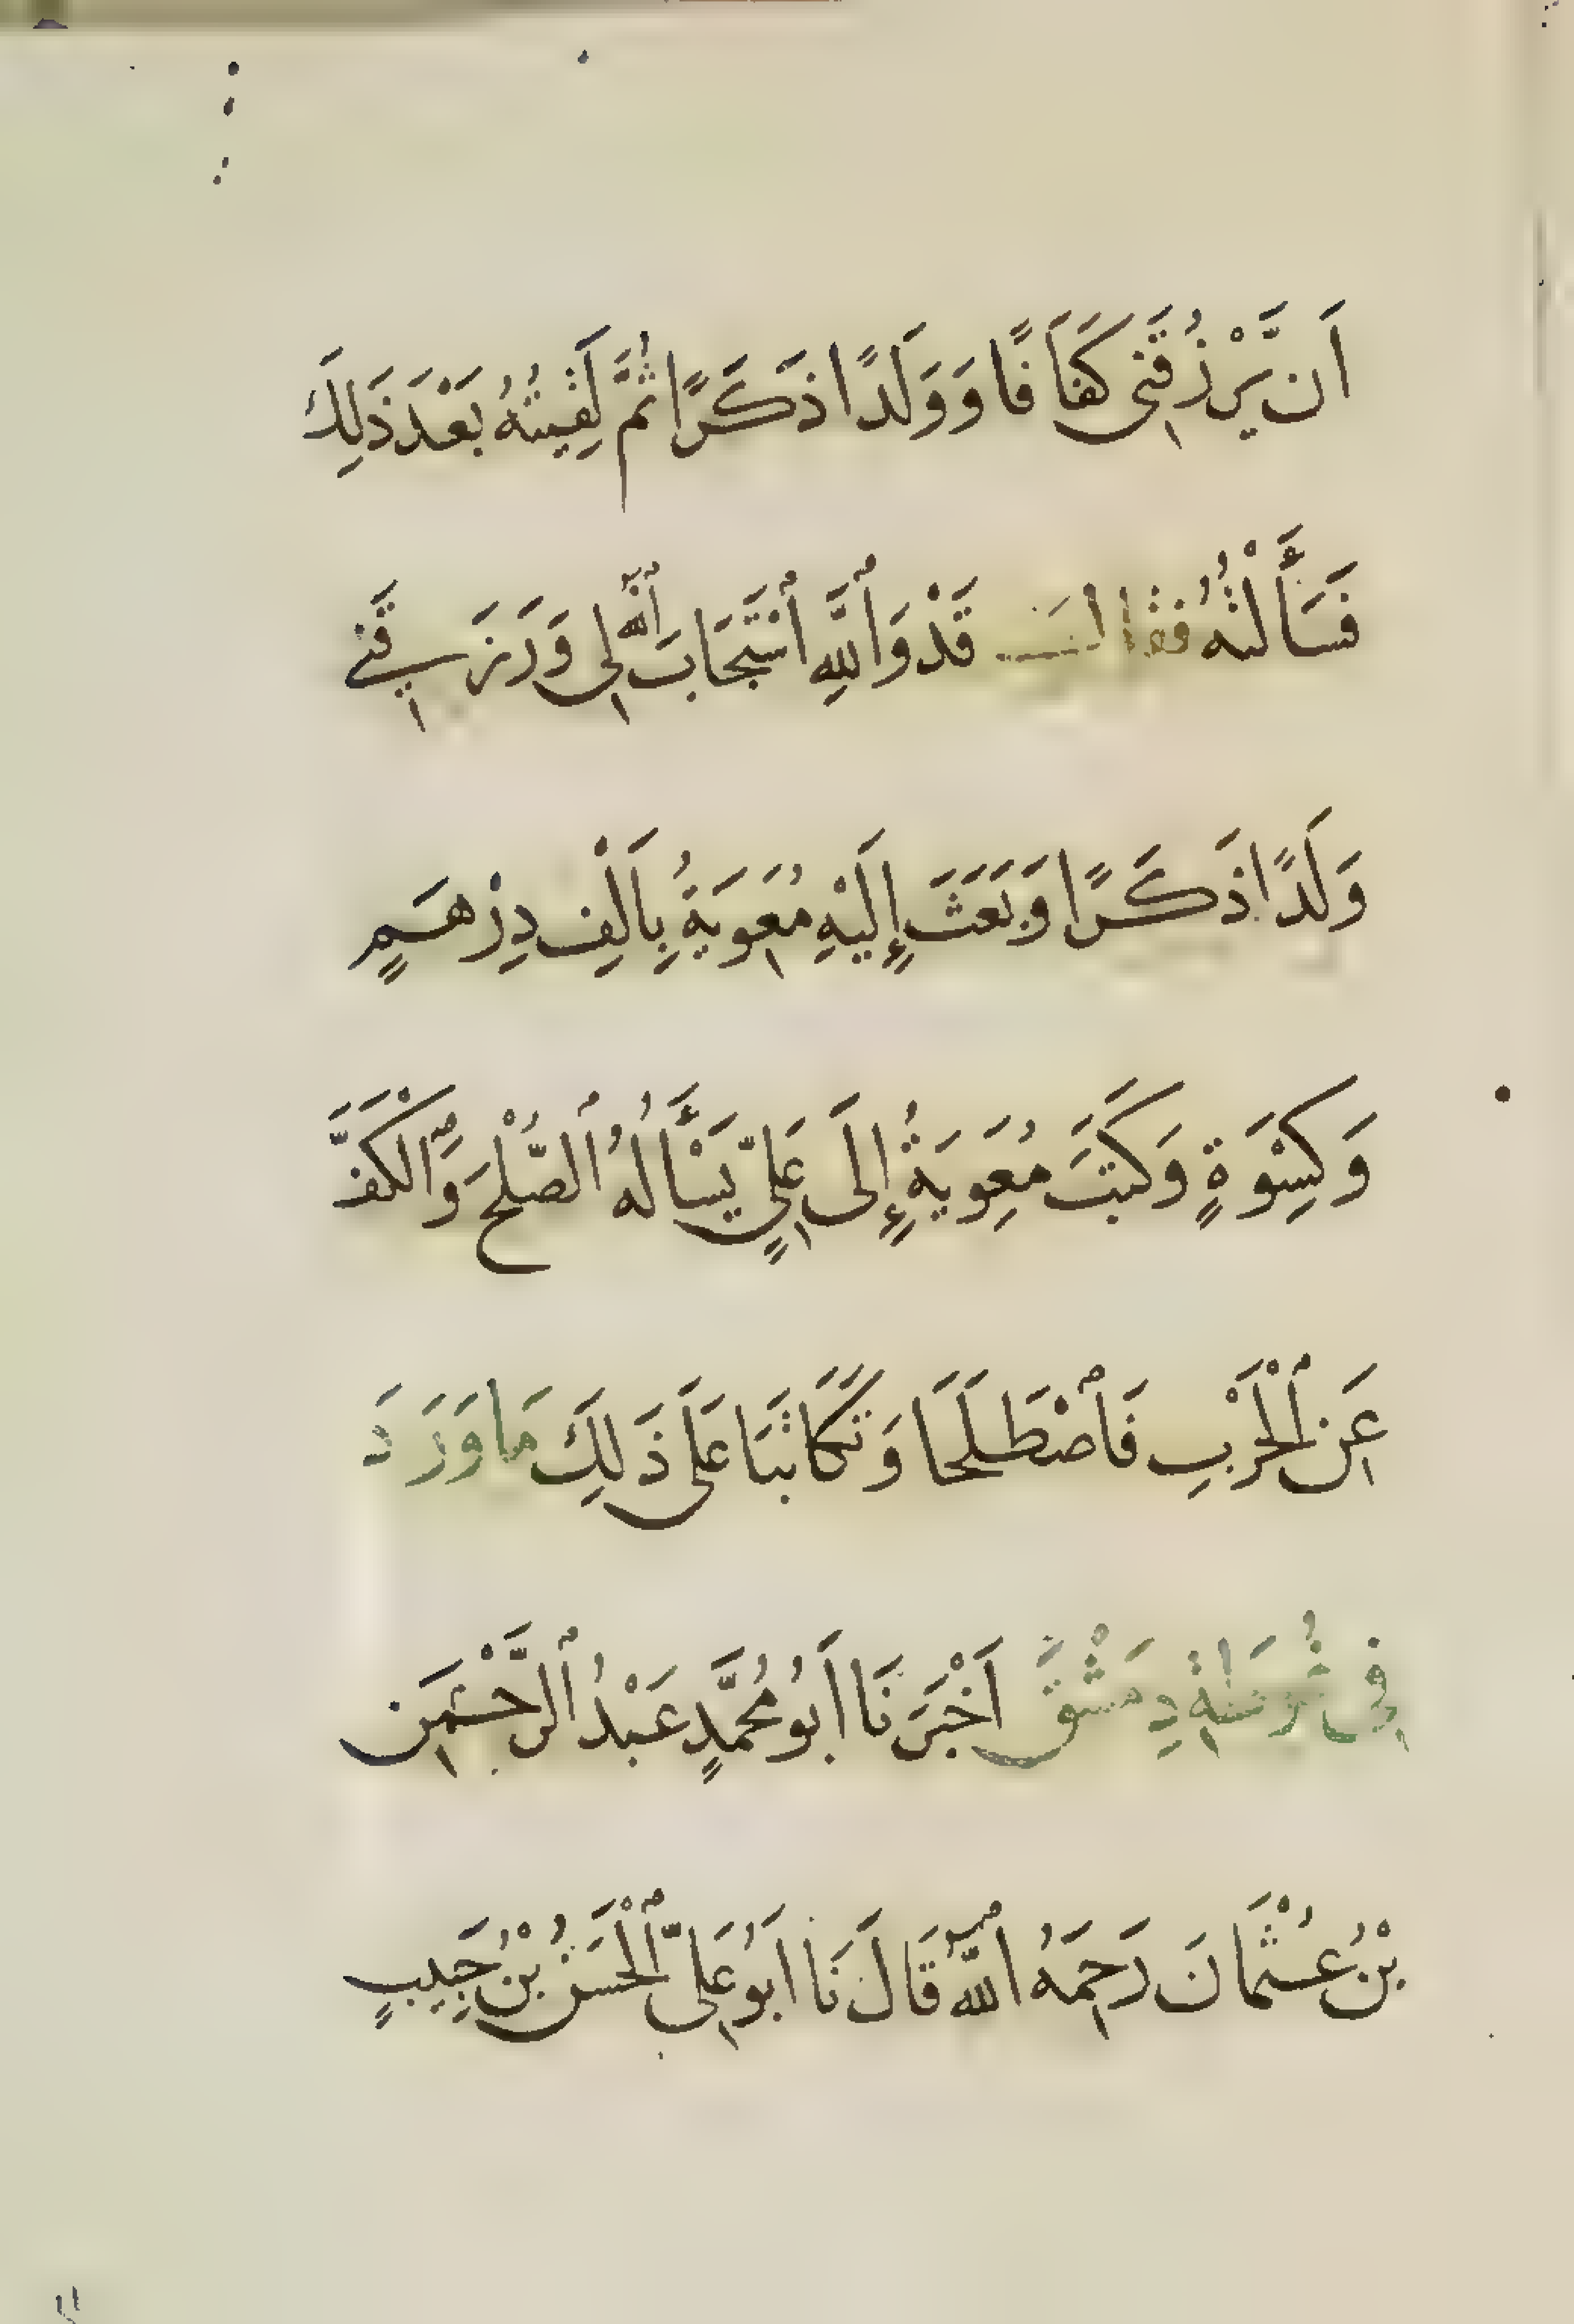 اَن يَّرْزُقَنِى كَفَافًا وَوَلَدًا ذَكَرًا ثُمَّ لَقِيتُهُ بَعْدَ ذَلِكَ
فَسَأَلْتُهُ فَقَالَ قَدْ وَٱللَّهِ ٱسْتَجَابَ ٱللَّهُ لِى وَرَزَقَنِى
وَلَدًا ذَكَرًا وَبَعَثَ إِلَيْهِ مُعَوِيَةُ بِاَلْفِ دِرْهَمٍ
وَكِسْوَةٍ وَكَتَبَ مُعَوِيَةُ إِلَى عَلِيٍّ يَسْأَلُهُ ٱلصُّلْحَ وَٱلْكَفَّ
عَنِ ٱلْحَرْبِ فَٱصْطَلَحَا وَتَكَاتَبَا عَلَى ذَلِكَ مَا وَرَدَ
فِى دِمَشْقَ اَخْبَرَنَا اَبُو مُحَمَّدٍ عَبْدُ ٱلرَّحْمَنِ
بْنُ عُثْمَانَ رَحِمَهُ ٱللَّهُ قَالَ نَا اَبُو عَلِىٍّ ٱلْحَسَنُ بْنُ حَبِيبٍ